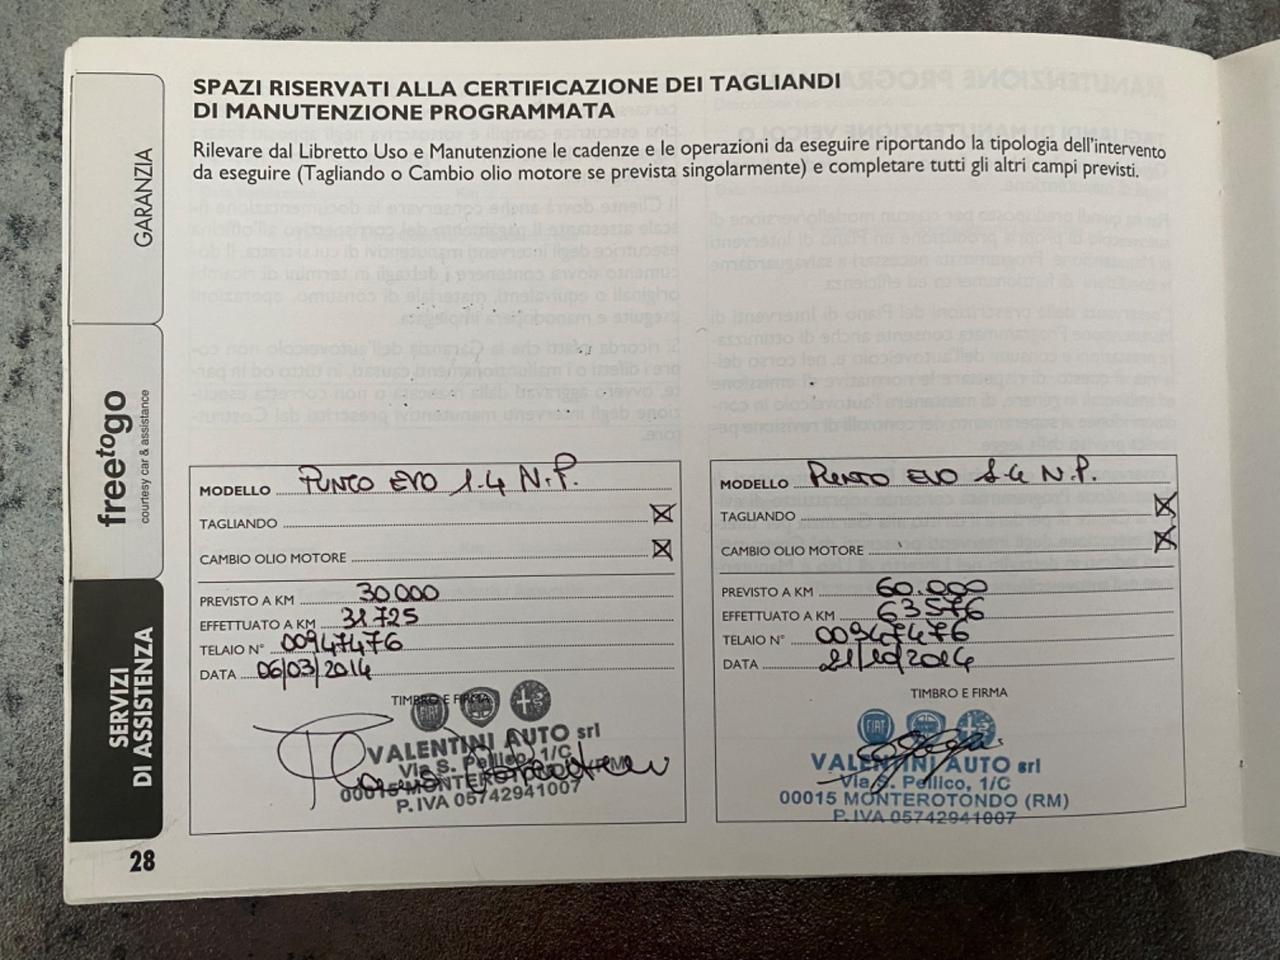 SPAZI RISERVATI ALLA CERTIFICAZIONE DEI TAGLIANDI
DI MANUTENZIONE PROGRAMMATA
Rilevare dal Libretto Uso e Manutenzione le cadenze e le operazioni da eseguire riportando la tipologia dell'intervento
da eseguire (Tagliando o Cambio olio motore se prevista singolarmente) e completare tutti gli altri campi previsti.
GARANZIA
freetogo
courtesy car & assistance
SERVIZI
DI ASSISTENZA
28
MODELLO PUNTO EVO 1.4 N.P.
TAGLIANDO
CAMBIO OLIO MOTORE
PREVISTO A KM 30.000
EFFETTUATO A KM 31725
TELAIO N° 00947476
DATA 06/03/2014
TIMBRO E FIRMA
FIAT
VALENTINI AUTO srl
Via S. Pellico, 1/C
00015 MONTEROTONDO (RM)
P. IVA 05742941007
MODELLO PUNTO EVO 1.4 N.P.
TAGLIANDO
CAMBIO OLIO MOTORE
PREVISTO A KM 60.000
EFFETTUATO A KM 63576
TELAIO N° 00947476
DATA 21/10/2014
TIMBRO E FIRMA
FIAT
VALENTINI AUTO srl
Via S. Pellico, 1/C
00015 MONTEROTONDO (RM)
P. IVA 05742941007